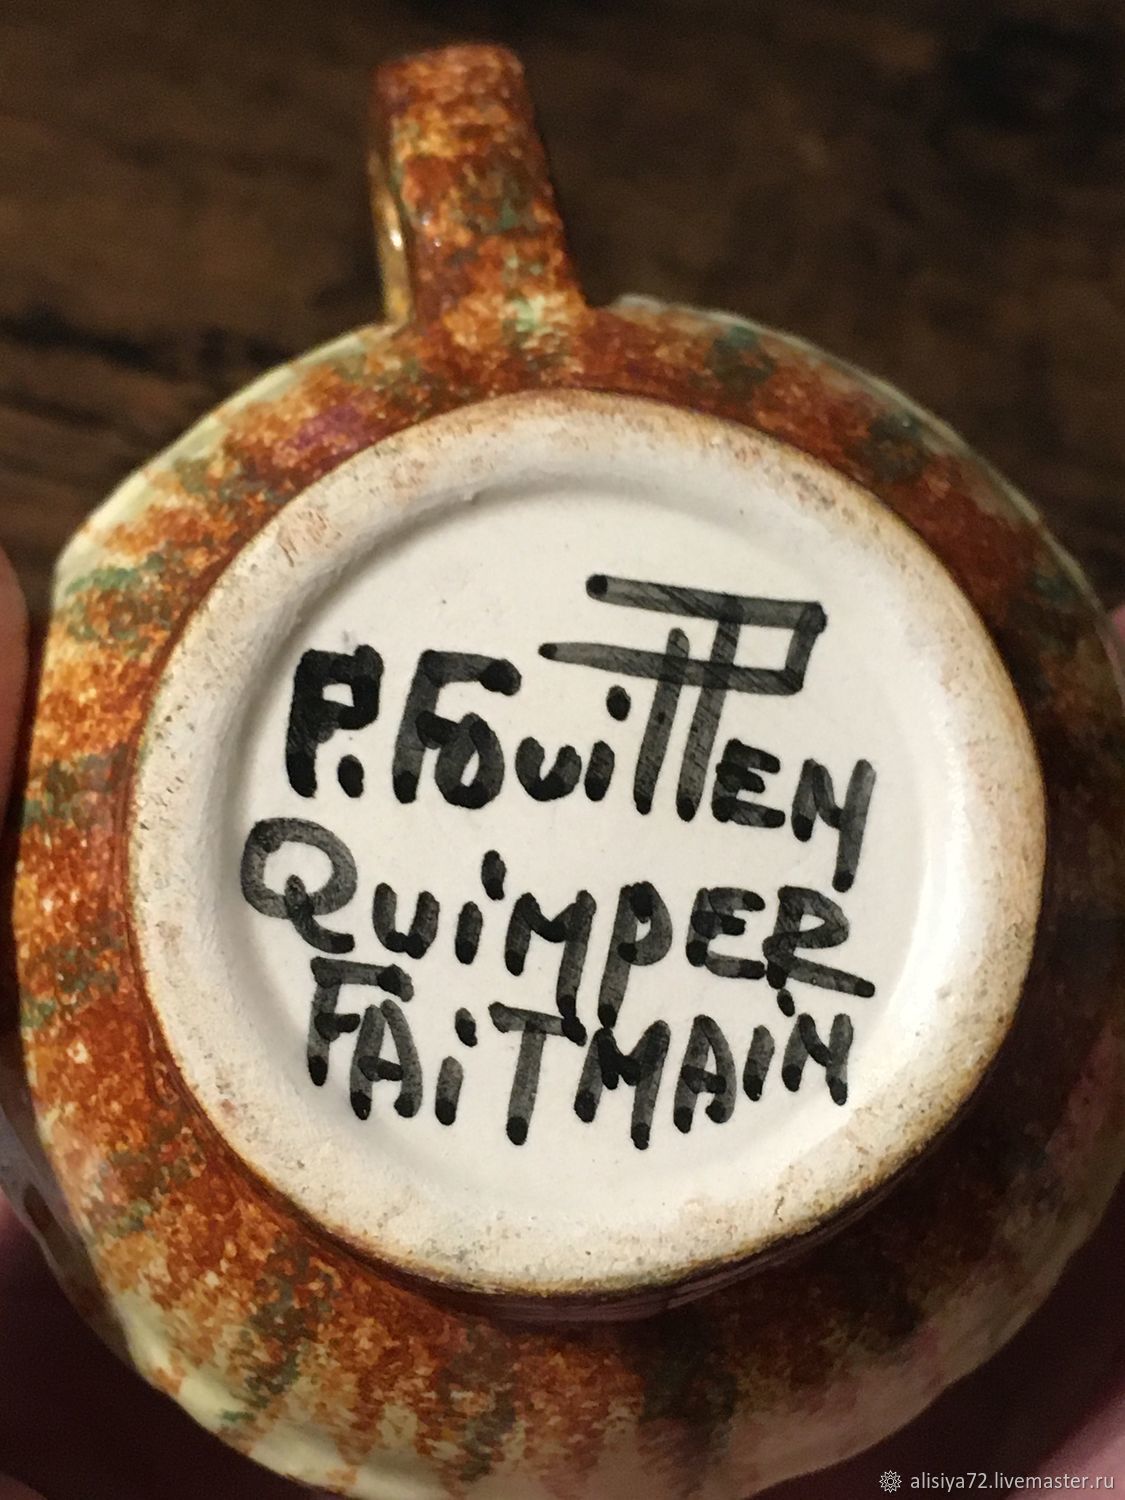 P. FOUiLLEN
QUiMPER
FAiT MAiN
alisiya72.livemaster.ru